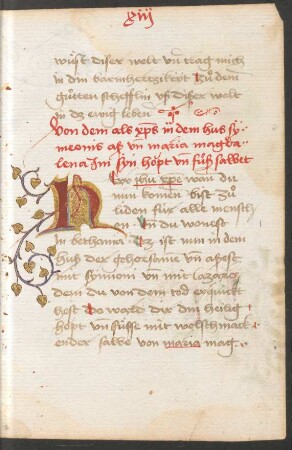 xiij
wüst diser welt vn̄ trag mich
in din barmhertzikeit zů dem
gůtten schefflin vß diser welt
in dz ewig leben
Von dem als xp̄s in dem hus sy-
meonis aß vn̄ maria magda-
lena Im syn hopt vn̄ füsß salbet
Herr ihu xp̄e wan du
nun komen bist zů
liden für alle mensch
en In du wonest
in bethania Ez ist nun in dem
huß der gehorsami vn̄ assest
mit symoni vn̄ mit lazaro
dem du von dem tod erquickt
hest Do ward dir din heilig
höpt vn̄ füsse mit wolschmack
ender salbe von maria mag